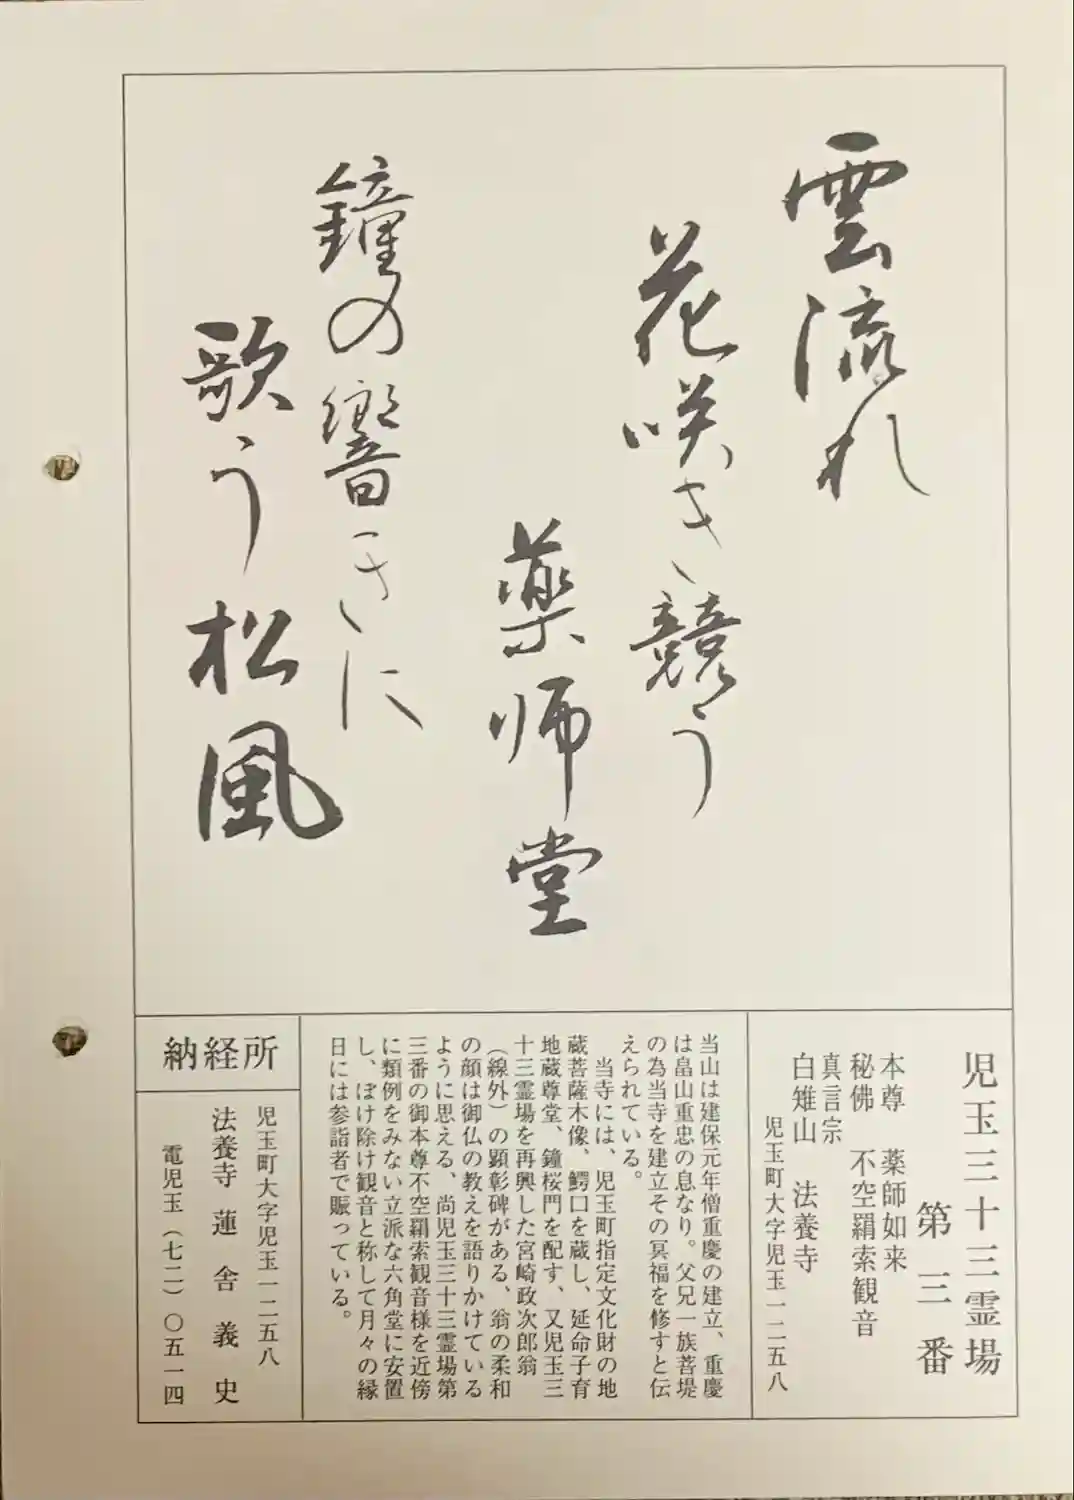 雲流れ
花咲き競う
薬師堂
鐘の響きに
歌う松風
児玉三十三霊場
第三番
本尊 薬師如来
秘佛 不空羂索観音
真言宗
白雉山 法養寺
児玉町大字児玉一二五八
当山は建保元年僧重慶の建立、重慶
は畠山重忠の息なり。父兄一族菩堤
の為当寺を建立その冥福を修すと伝
えられている。
当寺には、児玉町指定文化財の地
蔵菩薩木像、鰐口を蔵し、延命子育
地蔵尊堂、鐘桜門を配す、又児玉三
十三霊場を再興した宮崎政次郎翁
（線外）の顕彰碑がある、翁の柔和
の顔は御仏の教えを語りかけている
ように思える、尚児玉三十三霊場第
三番の御本尊不空羂索観音様を近傍
に類例をみない立派な六角堂に安置
し、ぼけ除け観音と称して月々の縁
日には参詣者で賑っている。
納経所
児玉町大字児玉一二五八
法養寺 蓮舎義史
電児玉（七二）〇五一四